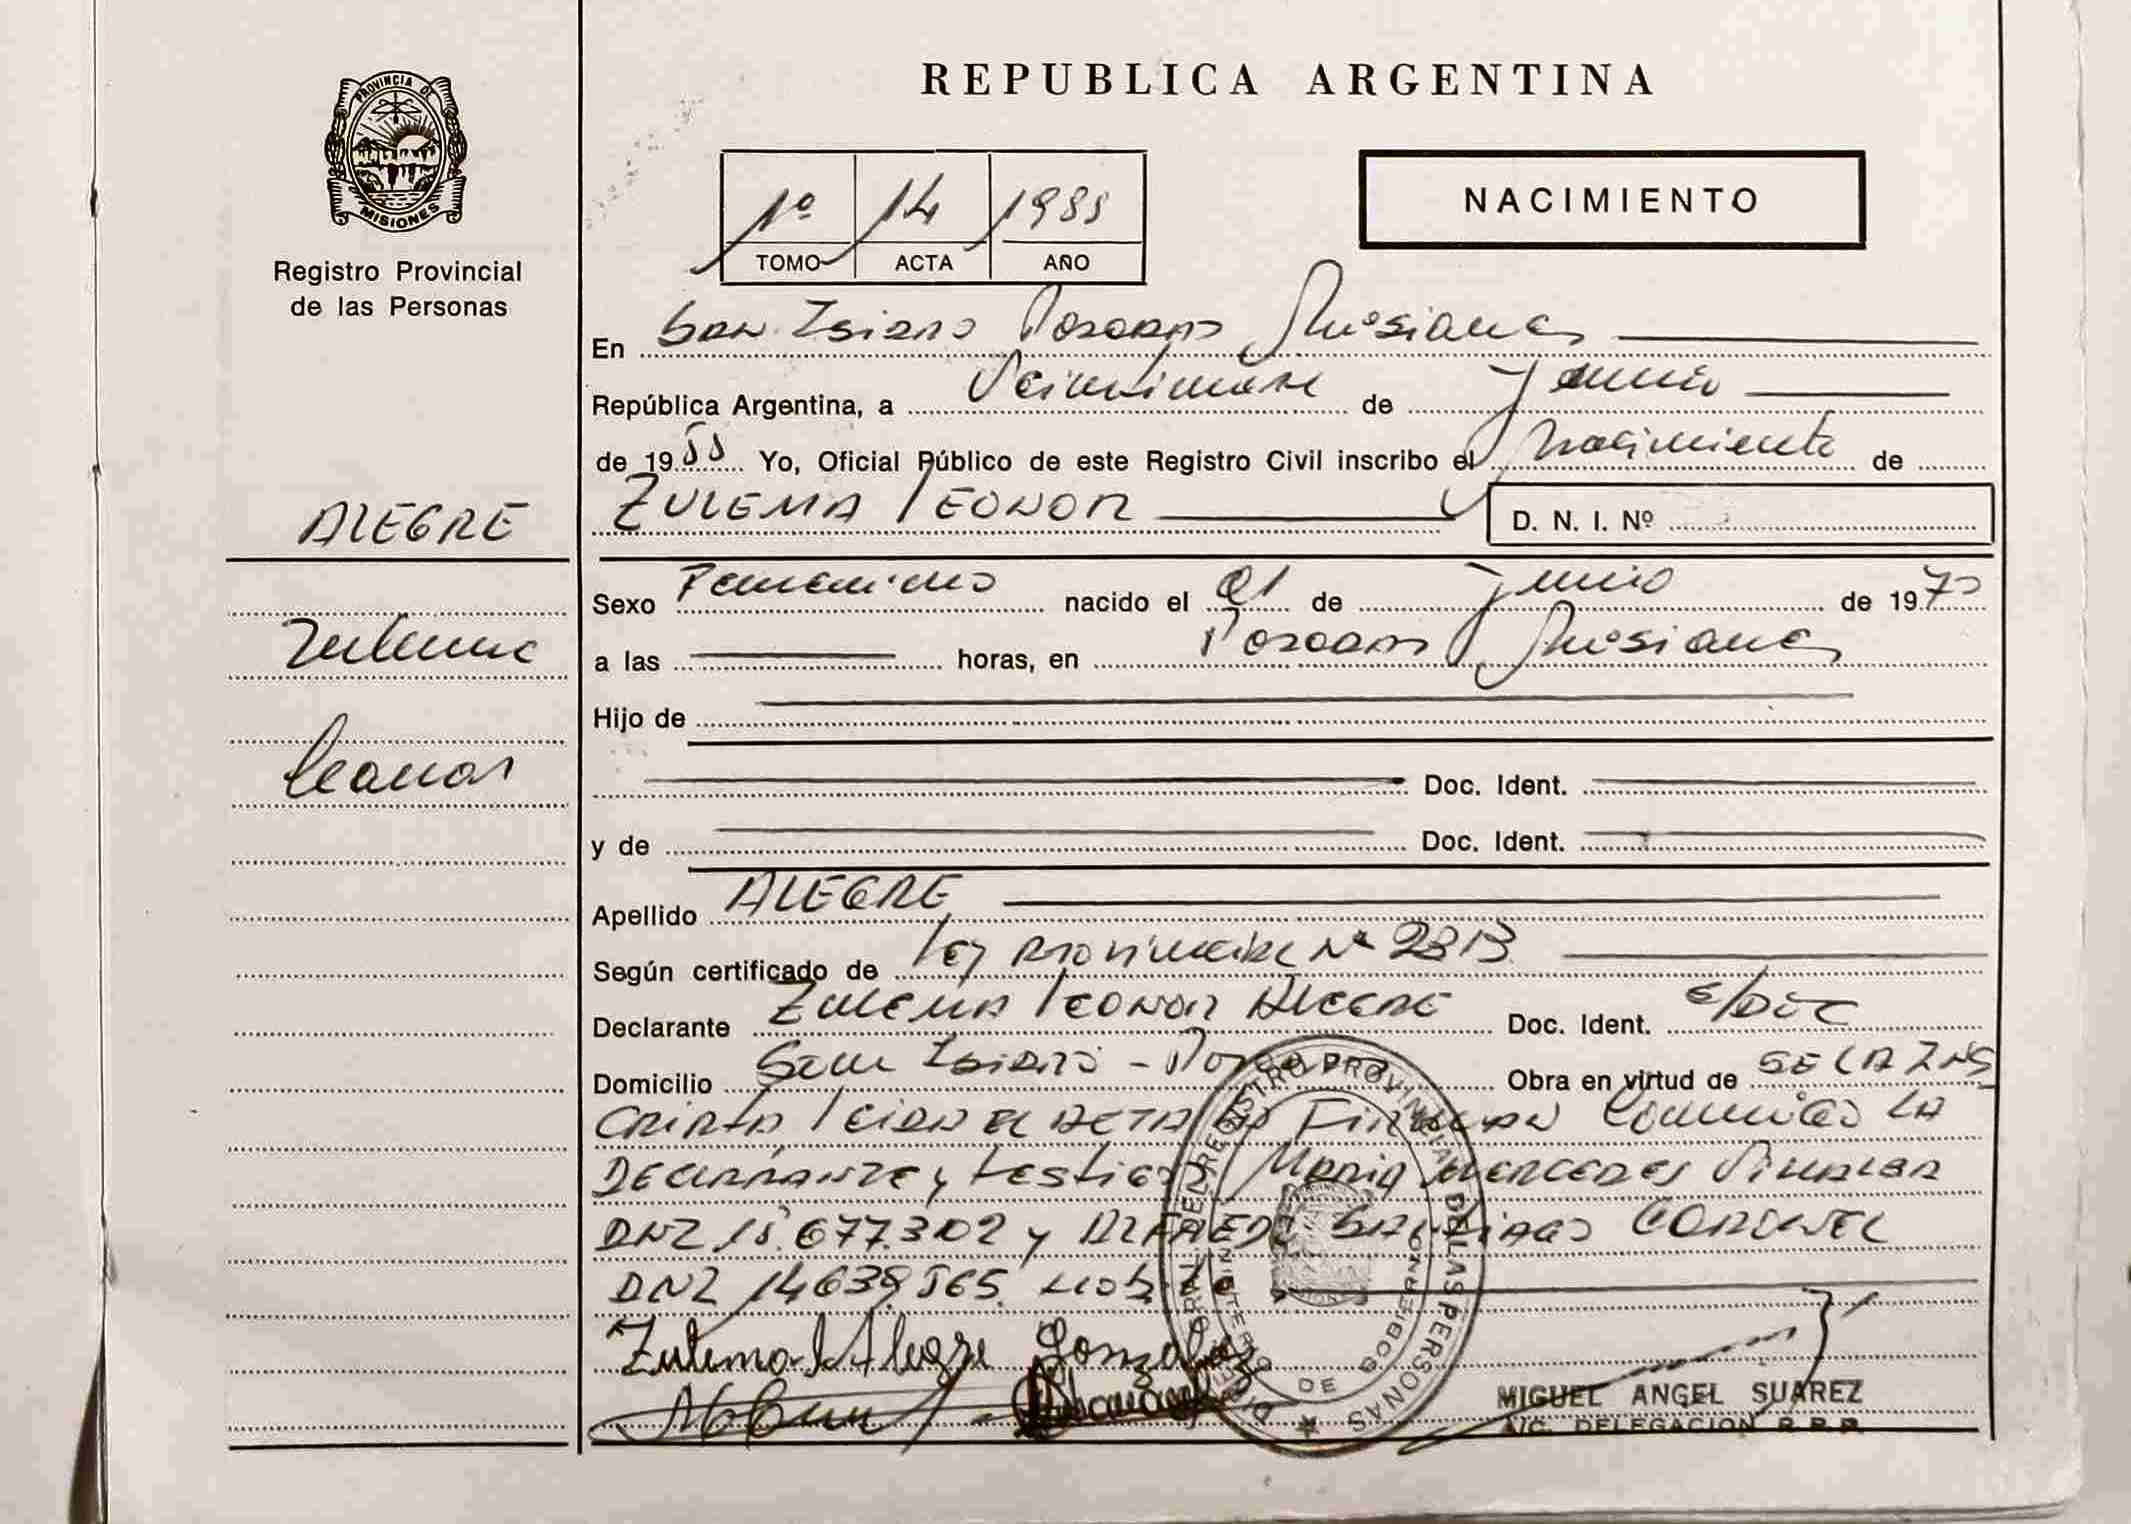 PROVINCIA DE
MISIONES
Registro Provincial
de las Personas
REPUBLICA ARGENTINA
1º 14 1988
TOMO ACTA AÑO
NACIMIENTO
En San Isidro Posadas Misiones
República Argentina, a de Junio
de 1988 Yo, Oficial Público de este Registro Civil inscribo el Nacimiento de
ZULEMA LEONOR
D. N. I. Nº
ALEGRE
Zulema
Leonor
Sexo Femenino nacido el 01 de Junio de 1970
a las horas, en Posadas Misiones
Hijo de
Doc. Ident.
y de Doc. Ident.
Apellido ALEGRE
Según certificado de Ley Provincial Nº 2313
Declarante ZULEMA LEONOR ALEGRE Doc. Ident. S/Doc
Domicilio San Isidro - Obra en virtud de
LEIDA EL ACTA FIRMAN Conmigo LA
DECLARANTE y testigos Maria MERCEDES
DNI 15.677.302 y ALFREDO SANTIAGO CORONEL
DNI 14639565
Zulema L Alegre Gonzalez
DEL REGISTRO PROVINCIAL DE LAS PERSONAS
DE GOBIERNO
MIGUEL ANGEL SUAREZ
A/C. DELEGACION R.P.P.